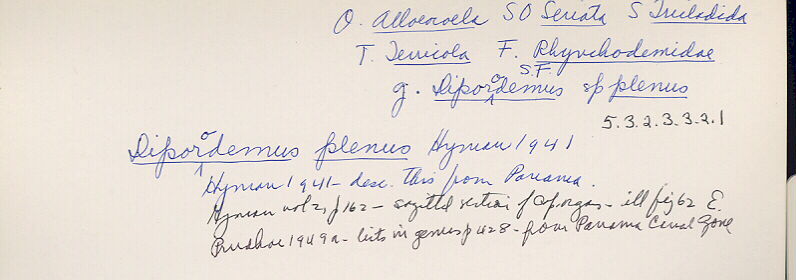 O. Alloeocoela SO Seriata S Tricladida
T. Terricola F. Rhynchodemidae
S.F.
g. Diporodemus sp plenus
5.3.2.3.3.2.1
Diporodemus plenus Hyman 1941
Hyman 1941 - desc. this from Panama.
Hyman vol 2, p 162 - sagittal section of cop. organs - ill fig 62 E.
Prudhoe 1949a - lists in genus p 428 - from Panama Canal Zone